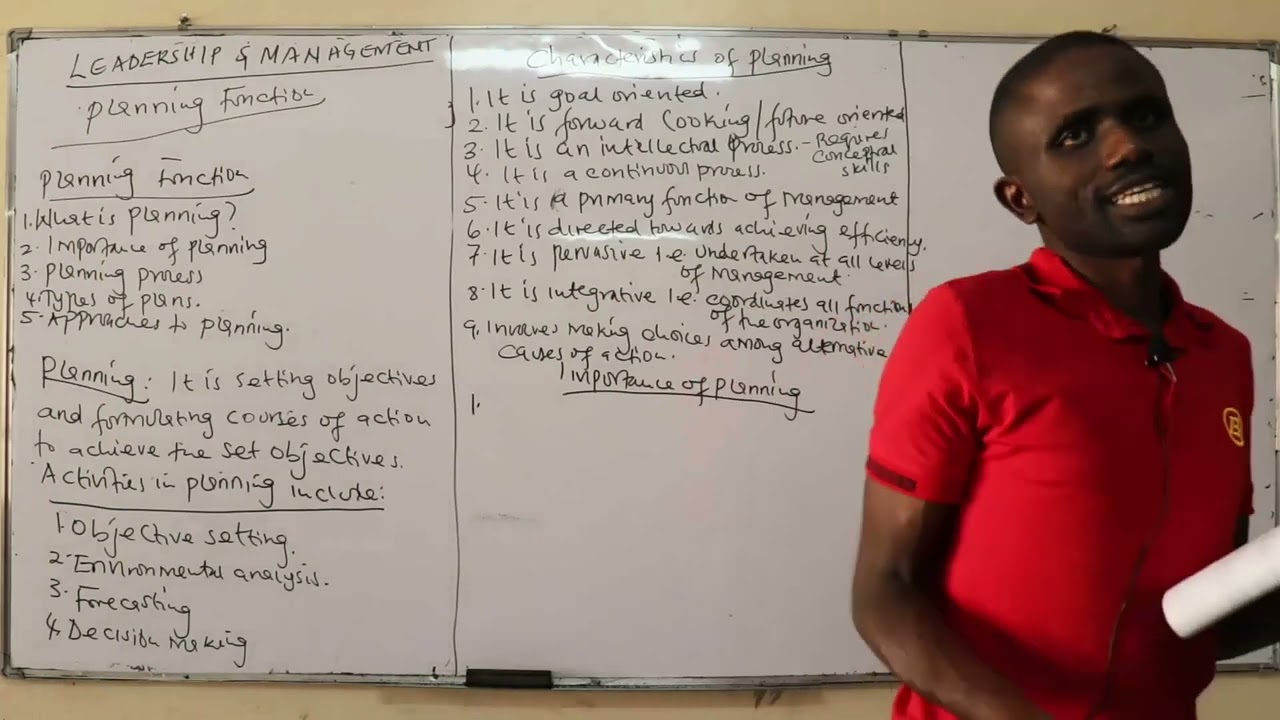 LEADERSHIP & MANAGEMENT
Planning Function
Planning Function
1. What is planning?
2. Importance of planning
3. Planning process
4. Types of plans.
5. Approaches to planning.
Planning: It is setting objectives
and formulating courses of action
to achieve the set objectives.
Activities in planning include:
1. Objective setting.
2. Environmental analysis.
3. Forecasting
4. Decision making
Characteristics of planning
1. It is goal oriented.
2. It is forward looking/future oriented
3. It is an intellectual process. - Requires
conceptual
skills
4. It is a continuous process.
5. It is a primary function of management
6. It is directed towards achieving efficiency.
7. It is pervasive i.e. undertaken at all levels
of management.
8. It is integrative i.e. coordinates all function
of the organization.
9. Involves making choices among alternative
causes of action.
Importance of planning
1.
B